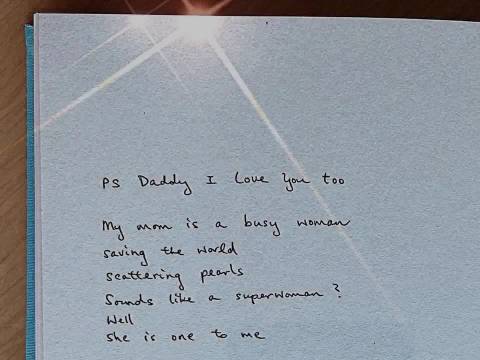 PS Daddy I love you too
My mom is a busy woman
saving the world
scattering pearls
Sounds like a superwoman ?
Well
she is one to me